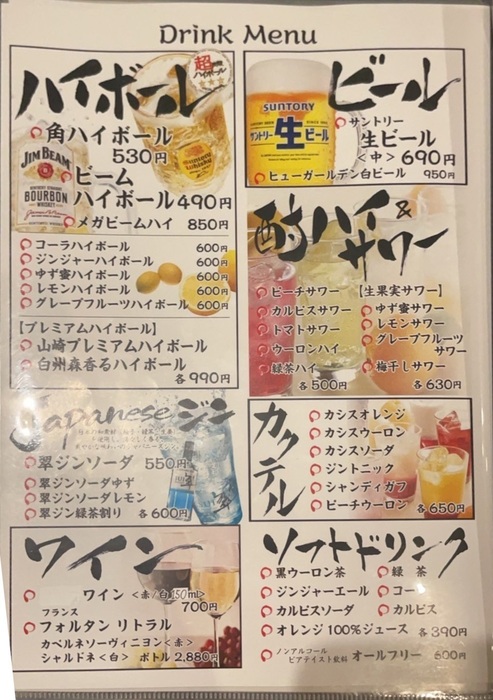 Drink Menu
ハイボール
超
ハイボール
角ハイボール
530円
JIM BEAM
BOURBON
WHISKEY
ビーム
ハイボール490円
メガビームハイ 850円
コーラハイボール 600円
ジンジャーハイボール 600円
ゆず蜜ハイボール 600円
レモンハイボール 600円
グレープフルーツハイボール 600円
【プレミアムハイボール】
山崎プレミアムハイボール
白州森香るハイボール
各990円
Japanese ジン
翠ジンソーダ 550円
翠ジンソーダゆず
翠ジンソーダレモン
翠ジン緑茶割り 各600円
ワイン
ワイン <赤/白150ml>
700円
フランス
フォルタン リトラル
カベルネソーヴィニヨン<赤>
シャルドネ<白> ボトル2,880円
ビール
SUNTORY
サントリー
生ビール
サントリー
生ビール
<中> 690円
ヒューガールデン白ビール 950円
酎ハイ&
サワー
ピーチサワー
カルピスサワー
トマトサワー
ウーロンハイ
緑茶ハイ
各500円
【生果実サワー】
ゆず蜜サワー
レモンサワー
グレープフルーツ
サワー
梅干しサワー
各630円
カクテル
カシスオレンジ
カシスウーロン
カシスソーダ
ジントニック
シャンディガフ
ピーチウーロン 各650円
ソフトドリンク
黒ウーロン茶 緑 茶
ジンジャーエール コーラ
カルピスソーダ カルピス
オレンジ100%ジュース 各390円
ノンアルコール
ビアテイスト飲料 オールフリー 600円